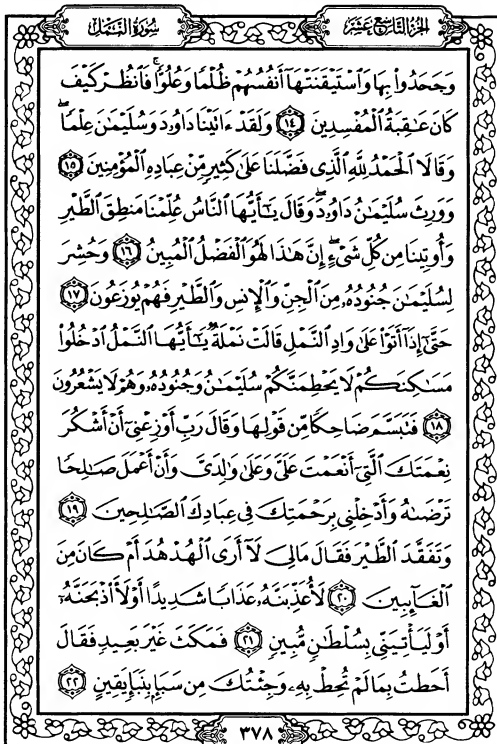 الجزء التاسع عشر
سورة النمل
وَجَحَدُوا۟ بِهَا وَٱسْتَيْقَنَتْهَآ أَنفُسُهُمْ ظُلْمًا وَعُلُوًّا ۚ فَٱنظُرْ كَيْفَ
كَانَ عَـٰقِبَةُ ٱلْمُفْسِدِينَ ١٤ وَلَقَدْ ءَاتَيْنَا دَاوُۥدَ وَسُلَيْمَـٰنَ عِلْمًا ۖ
وَقَالَا ٱلْحَمْدُ لِلَّهِ ٱلَّذِى فَضَّلَنَا عَلَىٰ كَثِيرٍ مِّنْ عِبَادِهِ ٱلْمُؤْمِنِينَ ١٥
وَوَرِثَ سُلَيْمَـٰنُ دَاوُۥدَ ۖ وَقَالَ يَـٰٓأَيُّهَا ٱلنَّاسُ عُلِّمْنَا مَنطِقَ ٱلطَّيْرِ
وَأُوتِينَا مِن كُلِّ شَىْءٍ ۖ إِنَّ هَـٰذَا لَهُوَ ٱلْفَضْلُ ٱلْمُبِينُ ١٦ وَحُشِرَ
لِسُلَيْمَـٰنَ جُنُودُهُۥ مِنَ ٱلْجِنِّ وَٱلْإِنسِ وَٱلطَّيْرِ فَهُمْ يُوزَعُونَ ١٧
حَتَّىٰٓ إِذَآ أَتَوْا۟ عَلَىٰ وَادِ ٱلنَّمْلِ قَالَتْ نَمْلَةٌ يَـٰٓأَيُّهَا ٱلنَّمْلُ ٱدْخُلُوا۟
مَسَـٰكِنَكُمْ لَا يَحْطِمَنَّكُمْ سُلَيْمَـٰنُ وَجُنُودُهُۥ وَهُمْ لَا يَشْعُرُونَ
١٨ فَتَبَسَّمَ ضَاحِكًا مِّن قَوْلِهَا وَقَالَ رَبِّ أَوْزِعْنِىٓ أَنْ أَشْكُرَ
نِعْمَتَكَ ٱلَّتِىٓ أَنْعَمْتَ عَلَىَّ وَعَلَىٰ وَٰلِدَىَّ وَأَنْ أَعْمَلَ صَـٰلِحًا
تَرْضَىٰهُ وَأَدْخِلْنِى بِرَحْمَتِكَ فِى عِبَادِكَ ٱلصَّـٰلِحِينَ ١٩
وَتَفَقَّدَ ٱلطَّيْرَ فَقَالَ مَالِىَ لَآ أَرَى ٱلْهُدْهُدَ أَمْ كَانَ مِنَ
ٱلْغَآئِبِينَ ٢٠ لَأُعَذِّبَنَّهُۥ عَذَابًا شَدِيدًا أَوْ لَأَا۟ذْبَحَنَّهُۥٓ
أَوْ لَيَأْتِيَنِّى بِسُلْطَـٰنٍ مُّبِينٍ ٢١ فَمَكَثَ غَيْرَ بَعِيدٍ فَقَالَ
أَحَطتُ بِمَا لَمْ تُحِطْ بِهِۦ وَجِئْتُكَ مِن سَبَإٍۭ بِنَبَإٍ يَقِينٍ ٢٢
٣٧٨